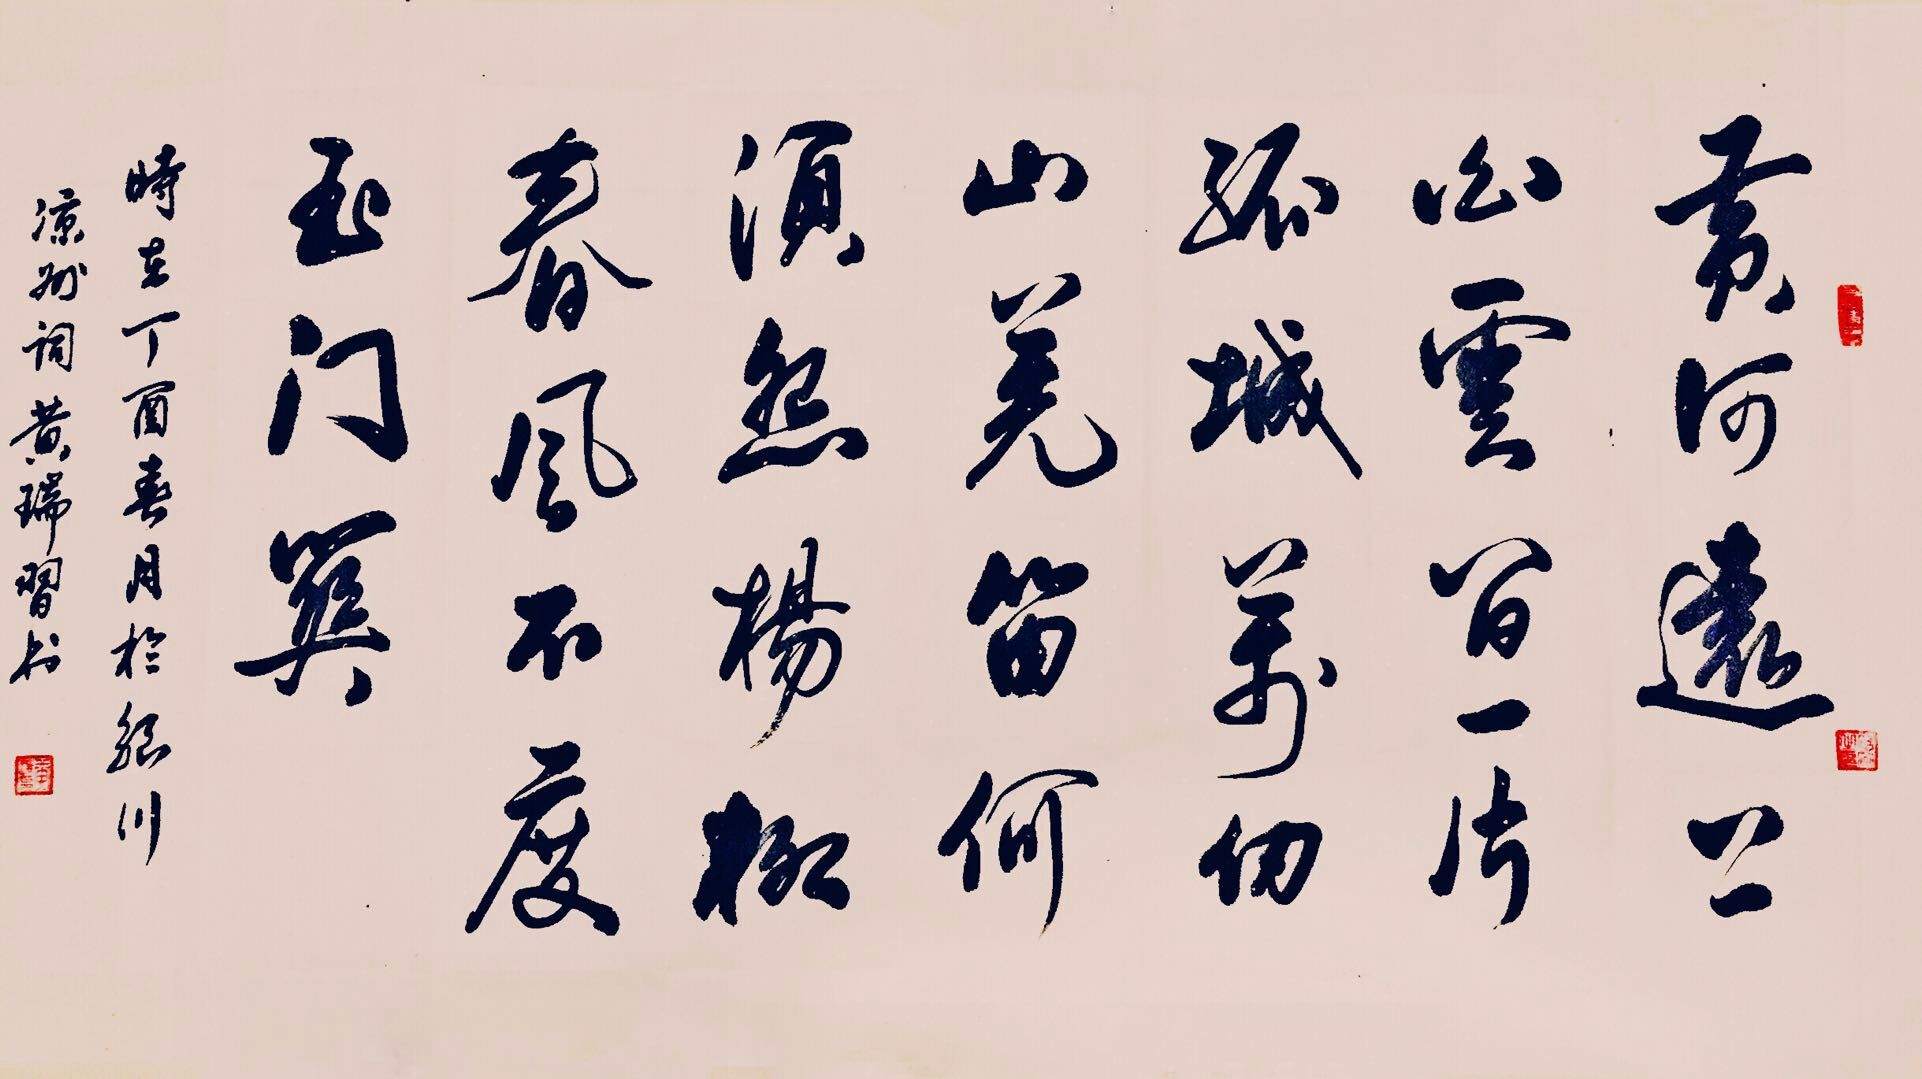 黄河遠上
白雲间一片
孤城萬仞
山羌笛何
須怨楊柳
春风不度
玉门關
時在丁酉春月於银川
凉州词黄瑞習书